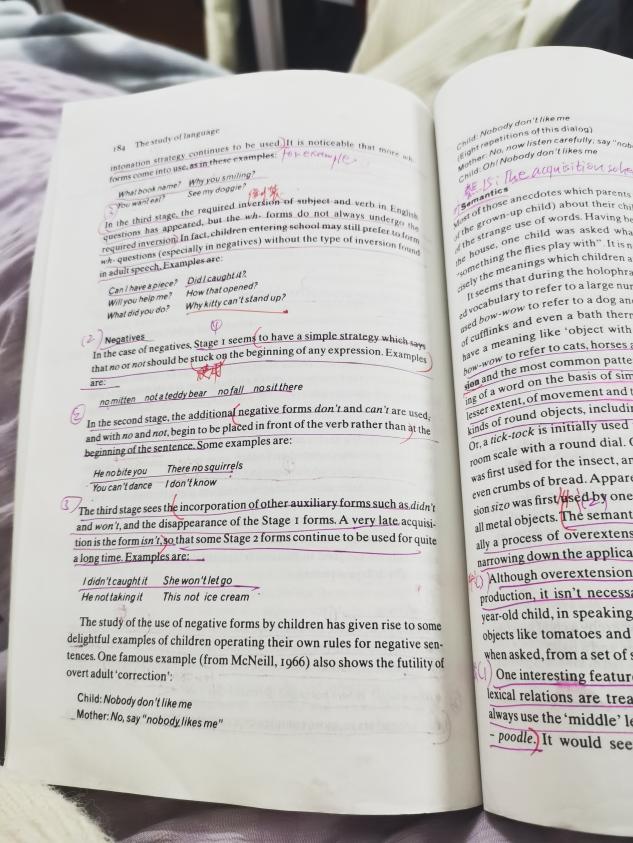 184 The study of language
intonation strategy continues to be used. It is noticeable that more wh-
forms come into use, as in these examples: for example
What book name? Why you smiling?
You want eat? See my doggie?
③
In the third stage, the required inversion of subject and verb in English
questions has appeared, but the wh- forms do not always undergo the
required inversion. In fact, children entering school may still prefer to form
wh- questions (especially in negatives) without the type of inversion found
in adult speech. Examples are:
Can I have a piece? Did I caught it?
Will you help me? How that opened?
What did you do? Why kitty can't stand up?
(2) Negatives
In the case of negatives, Stage 1 seems to have a simple strategy which says
that no or not should be stuck on the beginning of any expression. Examples
are:
no mitten not a teddy bear no fall no sit there
②
In the second stage, the additional negative forms don't and can't are used,
and with no and not, begin to be placed in front of the verb rather than at the
beginning of the sentence. Some examples are:
He no bite you There no squirrels
You can't dance I don't know
③
The third stage sees the incorporation of other auxiliary forms such as didn't
and won't, and the disappearance of the Stage 1 forms. A very late acquisi-
tion is the form isn't, so that some Stage 2 forms continue to be used for quite
a long time. Examples are:
I didn't caught it She won't let go
He not taking it This not ice cream
The study of the use of negative forms by children has given rise to some
delightful examples of children operating their own rules for negative sen-
tences. One famous example (from McNeill, 1966) also shows the futility of
overt adult 'correction':
Child: Nobody don't like me
Mother: No, say "nobody likes me"
Child: Nobody don't like me
(Eight repetitions of this dialog)
Mother: No, now listen carefully; say "nob
Child: Oh! Nobody don't likes me
The acquisition
Semantics
Most of those anecdotes which parents
of the grown-up child) about their chi
of the strange use of words. Having be
the house, one child was asked wha
"something the flies play with". It is n
cisely the meanings which children a
It seems that during the holophra
ed vocabulary to refer to a large nu
used bow-wow to refer to a dog an
of cufflinks and even a bath therm
have a meaning like 'object with
bow-wow to refer to cats, horses a
sion and the most common patte
ing of a word on the basis of sim
lesser extent, of movement and t
kinds of round objects, includin
Or, a tick-tock is initially used
room scale with a round dial. O
was first used for the insect, an
even crumbs of bread. Appare
sion sizo was first used by one
all metal objects. The semant
ally a process of overextens
narrowing down the applica
Although overextension
production, it isn't necessa
year-old child, in speaking
objects like tomatoes and
when asked, from a set of s
One interesting feature
lexical relations are trea
always use the 'middle' le
– poodle. It would see